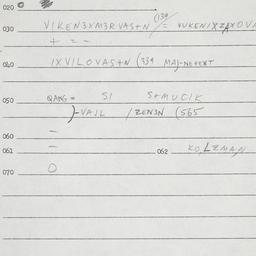 020
030 VIKEN3XM3RVAS+N (139 / = VUKENIXZAXOV
+ = -
040 IXVILOVAS+N (339 MAJ-NEFEXT
050 QANG = SI S+MUCIK
)-VAJL / ZEN3N (565
060 -
061 - 062 KO,LZMAN
070 O